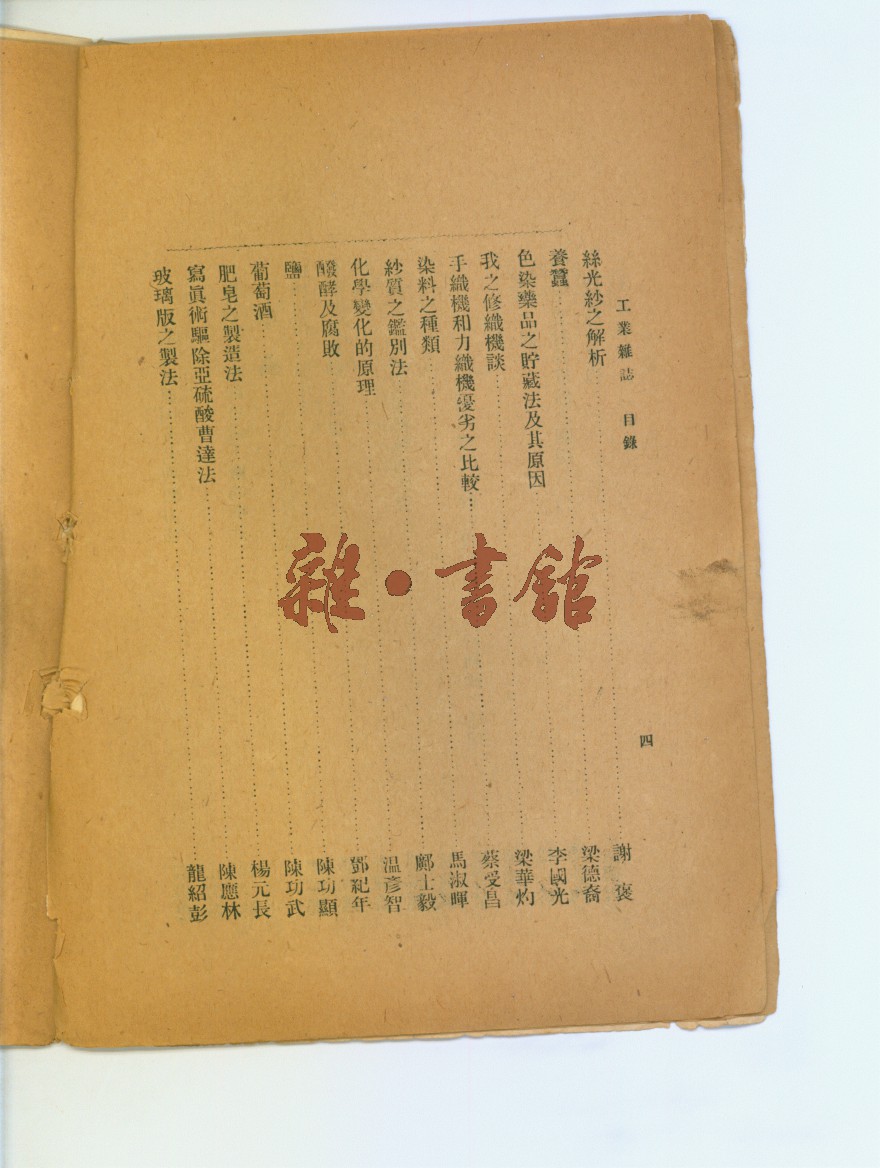 工業雜誌 目錄 四
絲光紗之解析 謝褒
養蠶 梁德裔
色染藥品之貯藏法及其原因 李國光
我之修織機談 梁華灼
手織機和力織機優劣之比較 蔡受昌
染料之種類 馬淑暉
紗質之鑑別法 鄺士毅
化學變化的原理 温彥智
醱酵及腐敗 鄧紀年
鹽 陳功顯
葡萄酒 陳功武
肥皂之製造法 楊元長
寫眞術驅除亞硫酸曹達法 陳應林
玻璃版之製法 龍紹彭
雜·書館